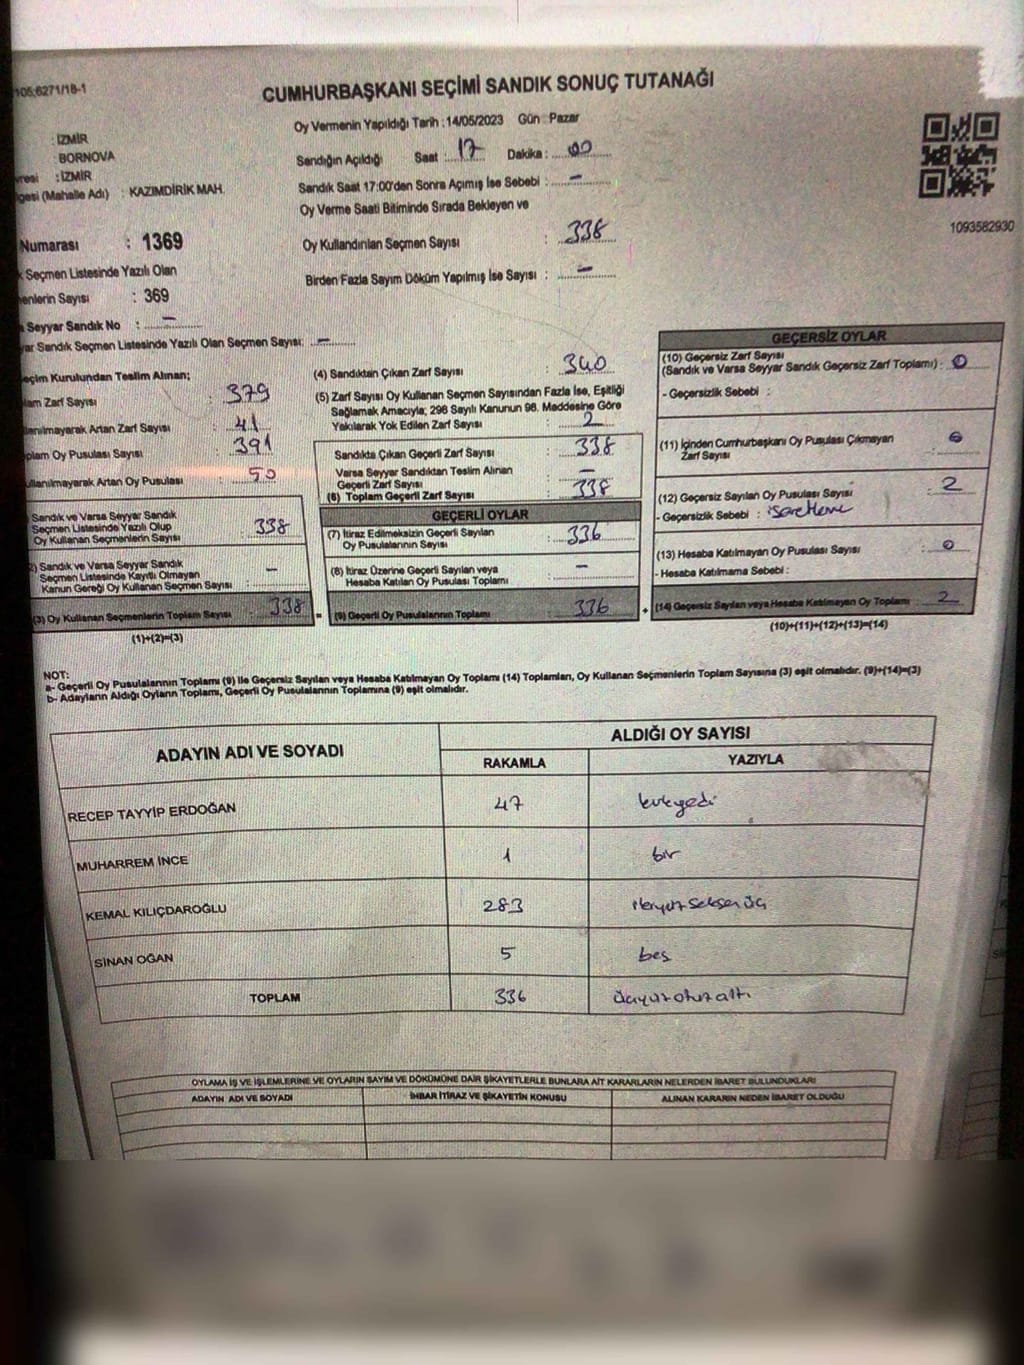 105.6271/18-1
CUMHURBAŞKANI SEÇİMİ SANDIK SONUÇ TUTANAĞI
: İZMİR
: BORNOVA
: İZMİR
(Mahalle Adı) : KAZIMDİRİK MAH.
Numarası : 1369
Seçmen Listesinde Yazılı Olan
Sayısı : 369
Seyyar Sandık No : -
Sandık Seçmen Listesinde Yazılı Olan Seçmen Sayısı: -
Oy Vermenin Yapıldığı Tarih :14/05/2023 Gün : Pazar
Sandığın Açıldığı Saat : 17 Dakika : 00
Sandık Saat 17:00'den Sonra Açımış İse Sebebi : -
Oy Verme Saati Bitiminde Sırada Bekleyen ve
Oy Kullandırılan Seçmen Sayısı : 338
Birden Fazla Sayım Döküm Yapılmış İse Sayısı : -
1093582930
Kurulundan Teslim Alınan;
Zarf Sayısı : 379
Artan Zarf Sayısı : 41
Oy Pusulası Sayısı : 391
Artan Oy Pusulası : 50
Sandık ve Varsa Seyyar Sandık
Seçmen Listesinde Yazılı Olup
Oy Kullanan Seçmenlerin Sayısı : 338
2) Sandık ve Varsa Seyyar Sandık
Seçmen Listesinde Kayıtlı Olmayan
Kanun Gereği Oy Kullanan Seçmen Sayısı : -
(3) Oy Kullanan Seçmenlerin Toplam Sayısı : 338 =
(1)+(2)=(3)
(4) Sandıktan Çıkan Zarf Sayısı : 340
(5) Zarf Sayısı Oy Kullanan Seçmen Sayısından Fazla İse, Eşitliği
Sağlamak Amacıyla; 298 Sayılı Kanunun 98. Maddesine Göre
Yakılarak Yok Edilen Zarf Sayısı : 2
Sandıkta Çıkan Geçerli Zarf Sayısı : 338
Varsa Seyyar Sandıktan Teslim Alınan
Geçerli Zarf Sayısı : -
(6) Toplam Geçerli Zarf Sayısı : 338
GEÇERLİ OYLAR
(7) İtiraz Edilmeksizin Geçerli Sayılan
Oy Pusulalarının Sayısı : 336
(8) İtiraz Üzerine Geçerli Sayılan veya
Hesaba Katılan Oy Pusulası Toplamı : -
(9) Geçerli Oy Pusulalarının Toplamı : 336 +
GEÇERSİZ OYLAR
(10) Geçersiz Zarf Sayısı
(Sandık ve Varsa Seyyar Sandık Geçersiz Zarf Toplamı) : 0
- Geçersizlik Sebebi :
(11) İçinden Cumhurbaşkanı Oy Pusulası Çıkmayan
Zarf Sayısı : 0
(12) Geçersiz Sayılan Oy Pusulası Sayısı : 2
- Geçersizlik Sebebi : işaretleme
(13) Hesaba Katılmayan Oy Pusulası Sayısı : 0
- Hesaba Katılmama Sebebi :
(14) Geçersiz Sayılan veya Hesaba Katılmayan Oy Toplamı : 2
(10)+(11)+(12)+(13)=(14)
NOT:
a- Geçerli Oy Pusulalarının Toplamı (9) ile Geçersiz Sayılan veya Hesaba Katılmayan Oy Toplamı (14) Toplamları, Oy Kullanan Seçmenlerin Toplam Sayısına (3) eşit olmalıdır. (9)+(14)=(3)
b- Adayların Aldığı Oyların Toplamı, Geçerli Oy Pusulalarının Toplamına (9) eşit olmalıdır.
ADAYIN ADI VE SOYADI ALDIĞI OY SAYISI
RAKAMLA YAZIYLA
RECEP TAYYİP ERDOĞAN 47 kırkyedi
MUHARREM İNCE 1 bir
KEMAL KILIÇDAROĞLU 283 ikiyüzseksenüç
SİNAN OĞAN 5 beş
TOPLAM 336 üçyüzotuzaltı
OYLAMA İŞ VE İŞLEMLERİNE VE OYLARIN SAYIM VE DÖKÜMÜNE DAİR ŞİKAYETLERLE BUNLARA AİT KARARLARIN NELERDEN İBARET BULUNDUKLARI
ADAYIN ADI VE SOYADI İHBAR İTİRAZ VE ŞİKAYETİN KONUSU ALINAN KARARIN NEDEN İBARET OLDUĞU